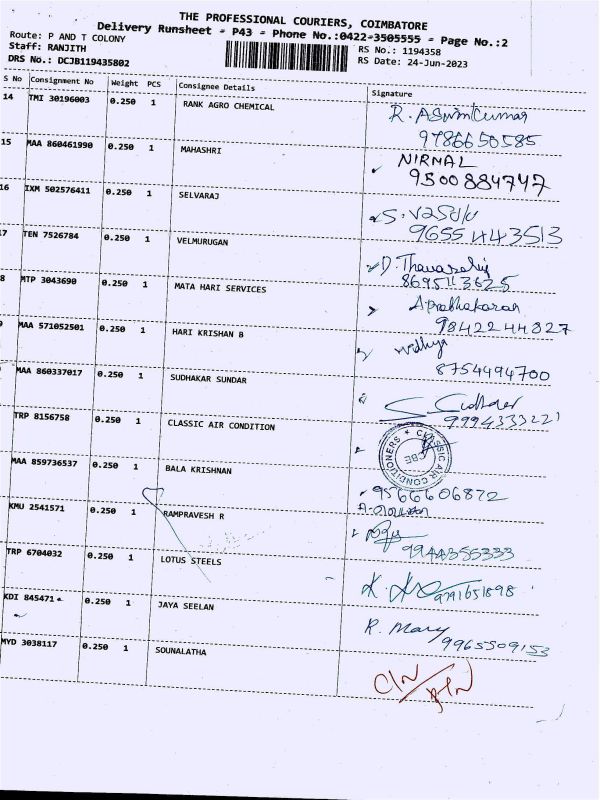 THE PROFESSIONAL COURIERS, COIMBATORE
Delivery Runsheet - P43 - Phone No.:0422-3505555 - Page No.:2
Route: P AND T COLONY
RS No.: 1194358
Staff: RANJITH
RS Date: 24-Jun-2023
DRS No.: DCJB119435802
S No Consignment No Weight PCS Consignee Details Signature
14 TMI 30196003 0.250 1 RANK AGRO CHEMICAL R. Aswinkumar
9786650585
15 MAA 860461990 0.250 1 MAHASHRI NIRMAL
9500884747
16 IXM 502576411 0.250 1 SELVARAJ
9655443513
17 TEN 7526784 0.250 1 VELMURUGAN
8695113625
8 MTP 3043690 0.250 1 MATA HARI SERVICES A Prabhakaran
9842244327
9 MAA 571052501 0.250 1 HARI KRISHAN B vidhya
8754494700
MAA 860337017 0.250 1 SUDHAKAR SUNDAR
9994333221
TRP 8156758 0.250 1 CLASSIC AIR CONDITION CLASSIC AIR CONDITIONERS CBE
MAA 859736537 0.250 1 BALA KRISHNAN
9566606872
KMU 2541571 0.250 1 RAMPRAVESH R
9944355333
TRP 6704032 0.250 1 LOTUS STEELS
9791651898
KDI 845471 0.250 1 JAYA SEELAN R. Mary
9965509153
MYD 3038117 0.250 1 SOUNALATHA